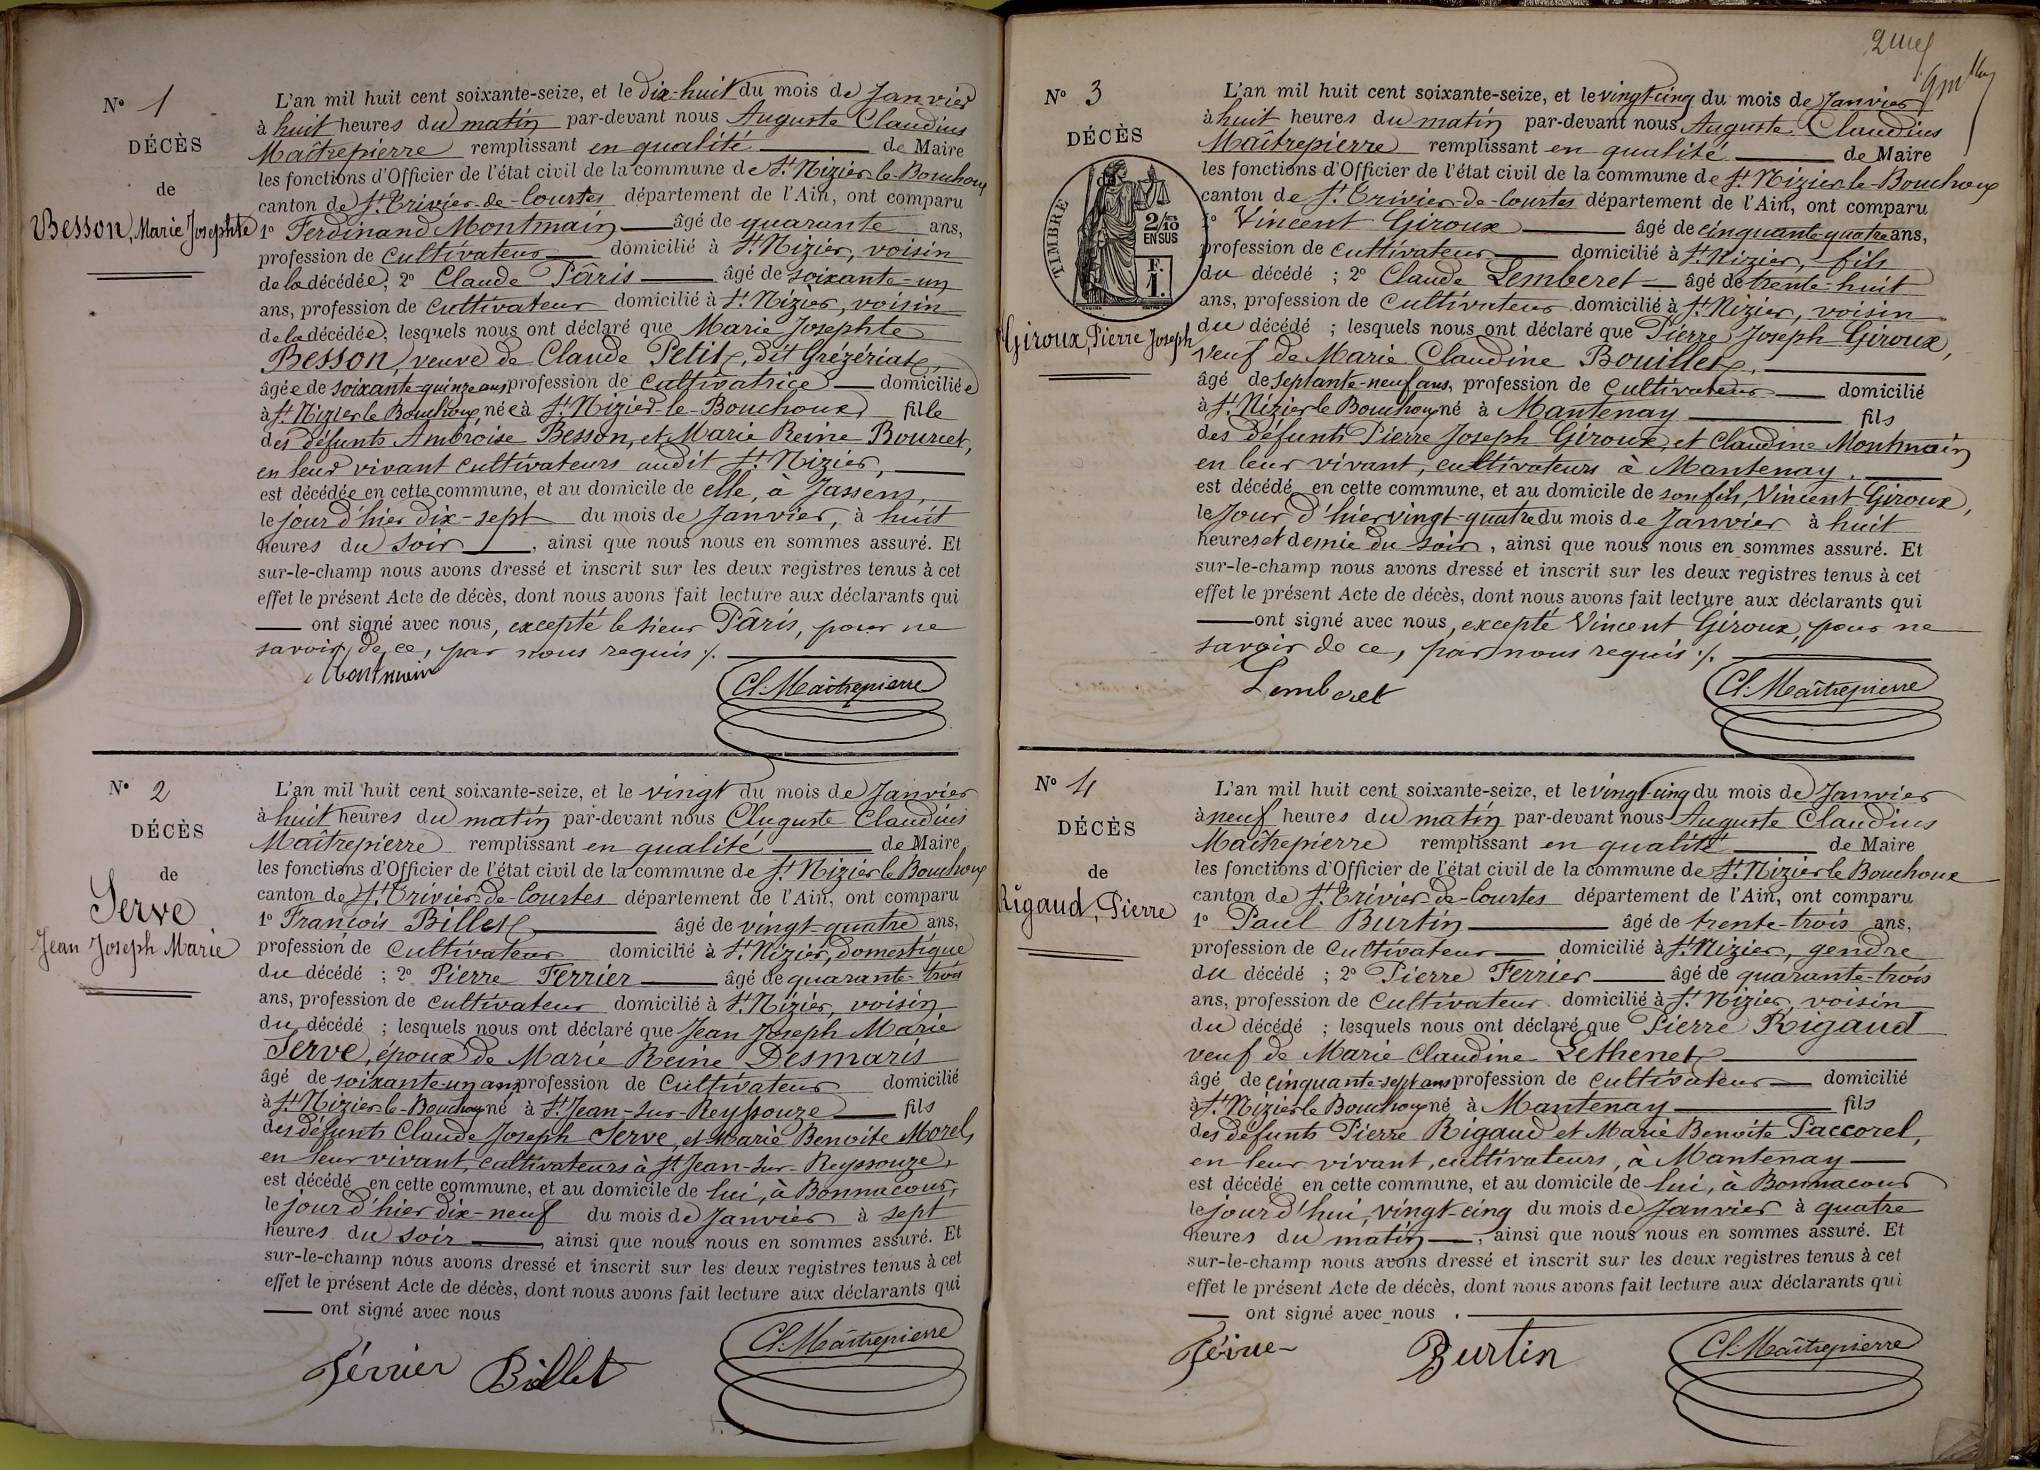 N° 1
DÉCÈS
de
Besson, Marie Josephte
L'an mil huit cent soixante-seize, et le dix-huit du mois de Janvier
à huit heures du matin par-devant nous Auguste Claudius
Maîtrepierre remplissant en qualité de Maire
les fonctions d'Officier de l'état civil de la commune de St Nizier-le-Bouchoux
canton de St Trivier-de-Courtes département de l'Ain, ont comparu
1° Ferdinand Montmain âgé de quarante ans,
profession de cultivateur domicilié à St Nizier, voisin
de la décédée; 2° Claude Pâris âgé de soixante-un
ans, profession de cultivateur domicilié à St Nizier, voisin
de la décédée, lesquels nous ont déclaré que Marie Josephte
Besson, veuve de Claude Petit, dit Grézériat,
âgée de soixante-quinze ans profession de cultivatrice domiciliée
à St Nizier le Bouchoux née à St Nizier-le-Bouchoux fille
des défunts Ambroise Besson, et Marie Reine Bourcet,
en leur vivant cultivateurs audit St Nizier,
est décédée en cette commune, et au domicile de elle, à Jassens,
le jour d'hier dix-sept du mois de Janvier, à huit
heures du soir, ainsi que nous nous en sommes assuré. Et
sur-le-champ nous avons dressé et inscrit sur les deux registres tenus à cet
effet le présent Acte de décès, dont nous avons fait lecture aux déclarants qui
ont signé avec nous, excepté le sieur Pâris, pour ne
savoir de ce, par nous requis ./.
Montmain
Cl. Maîtrepierre
N° 2
DÉCÈS
de
Serve
Jean Joseph Marie
L'an mil huit cent soixante-seize, et le vingt du mois de Janvier
à huit heures du matin par-devant nous Auguste Claudius
Maîtrepierre remplissant en qualité de Maire
les fonctions d'Officier de l'état civil de la commune de St Nizier le Bouchoux
canton de St Trivier-de-Courtes département de l'Ain, ont comparu
1° François Billet âgé de vingt-quatre ans,
profession de cultivateur domicilié à St Nizier, domestique
du décédé ; 2° Pierre Ferrier âgé de quarante-trois
ans, profession de cultivateur domicilié à St Nizier, voisin
du décédé ; lesquels nous ont déclaré que Jean Joseph Marie
Serve, époux de Marie Reine Desmaris
âgé de soixante-un ans profession de cultivateur domicilié
à St Nizier-le-Bouchoux né à St Jean-sur-Reyssouze fils
des défunts Claude Joseph Serve et Marie Benoite Morel,
en leur vivant, cultivateurs à St Jean-sur-Reyssouze,
est décédé en cette commune, et au domicile de lui, à Bonnacour,
le jour d'hier dix-neuf du mois de Janvier à sept
heures du soir, ainsi que nous nous en sommes assuré. Et
sur-le-champ nous avons dressé et inscrit sur les deux registres tenus à cet
effet le présent Acte de décès, dont nous avons fait lecture aux déclarants qui
ont signé avec nous
Férrier Billet
Cl. Maîtrepierre
N° 3
DÉCÈS
TIMBRE
2/10 EN SUS
F. 1.
Giroux, Pierre Joseph
L'an mil huit cent soixante-seize, et le vingt-cinq du mois de Janvier
à huit heures du matin par-devant nous Auguste Claudius
Maîtrepierre remplissant en qualité de Maire
les fonctions d'Officier de l'état civil de la commune de St Nizier-le-Bouchoux
canton de St Trivier-de-Courtes département de l'Ain, ont comparu
1° Vincent Giroux âgé de cinquante-quatre ans,
profession de cultivateur domicilié à St Nizier, fils
du décédé ; 2° Claude Lemberet âgé de trente-huit
ans, profession de cultivateur domicilié à St Nizier, voisin
du décédé ; lesquels nous ont déclaré que Pierre Joseph Giroux,
veuf de Marie Claudine Bouillet,
âgé de septante-neuf ans, profession de cultivateur domicilié
à St Nizier le Bouchoux né à Mantenay fils
des défunts Pierre Joseph Giroux, et Claudine Montmain
en leur vivant, cultivateurs à Mantenay,
est décédé en cette commune, et au domicile de son fils, Vincent Giroux,
le Jour d'hier vingt-quatre du mois de Janvier à huit
heures et demie du soir, ainsi que nous nous en sommes assuré. Et
sur-le-champ nous avons dressé et inscrit sur les deux registres tenus à cet
effet le présent Acte de décès, dont nous avons fait lecture aux déclarants qui
ont signé avec nous, excepté Vincent Giroux, pour ne
savoir de ce, par nous requis ./.
Lemberet
Cl. Maîtrepierre
N° 4
DÉCÈS
de
Rigaud, Pierre
L'an mil huit cent soixante-seize, et le vingt-cinq du mois de Janvier
à neuf heures du matin par-devant nous Auguste Claudius
Maîtrepierre remplissant en qualité de Maire
les fonctions d'Officier de l'état civil de la commune de St Nizier le Bouchoux
canton de St Trivier-de-Courtes département de l'Ain, ont comparu
1° Paul Burtin âgé de trente-trois ans,
profession de cultivateur domicilié à St Nizier, gendre
du décédé ; 2° Pierre Ferrier âgé de quarante-trois
ans, profession de cultivateur domicilié à St Nizier, voisin
du décédé ; lesquels nous ont déclaré que Pierre Rigaud
veuf de Marie Claudine Lethenet
âgé de cinquante-sept ans profession de cultivateur domicilié
à St Nizier le Bouchoux né à Mantenay fils
des défunts Pierre Rigaud et Marie Benoite Paccorel,
en leur vivant, cultivateurs, à Mantenay
est décédé en cette commune, et au domicile de lui, à Bonnacour
le jour d'hui, vingt-cinq du mois de Janvier à quatre
heures du matin, ainsi que nous nous en sommes assuré. Et
sur-le-champ nous avons dressé et inscrit sur les deux registres tenus à cet
effet le présent Acte de décès, dont nous avons fait lecture aux déclarants qui
ont signé avec nous .
Burtin
Cl. Maîtrepierre